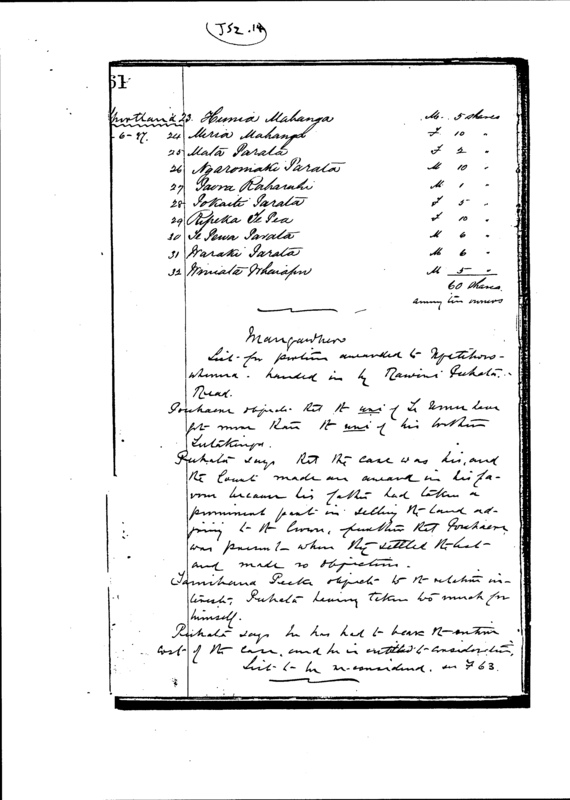 JS2.14
61
23 Hunia Mahanga M. 5 shares
6-97. 24 Miria Mahanga F 10 "
25 Mata Parata F 2 "
26 Ngaromaki Parata M 10 "
27 M 1 "
28 F 5 "
29 Ripeka Te Pea F 10 "
30 M 6 "
31 Waraki Parata M 6 "
32 Winiata M 5 "
60 shares
among ten owners
Mangawhero
List for portion awarded to
handed in by Rawiri
Read.
objects that the uri of Te have
got more than the uri of his brother
says that the case was his, and
the Court made an award in his fa-
vour because his father had taken a
prominent part in selling the land ad-
joining to the Crown, further that
was present when they settled the list
and made no objection.
Tamihana objects to the relative in-
terests, having taken too much for
himself.
says he has had to bear the entire
cost of the case, and he is entitled to consideration.
List to be re-considered. see F 63.